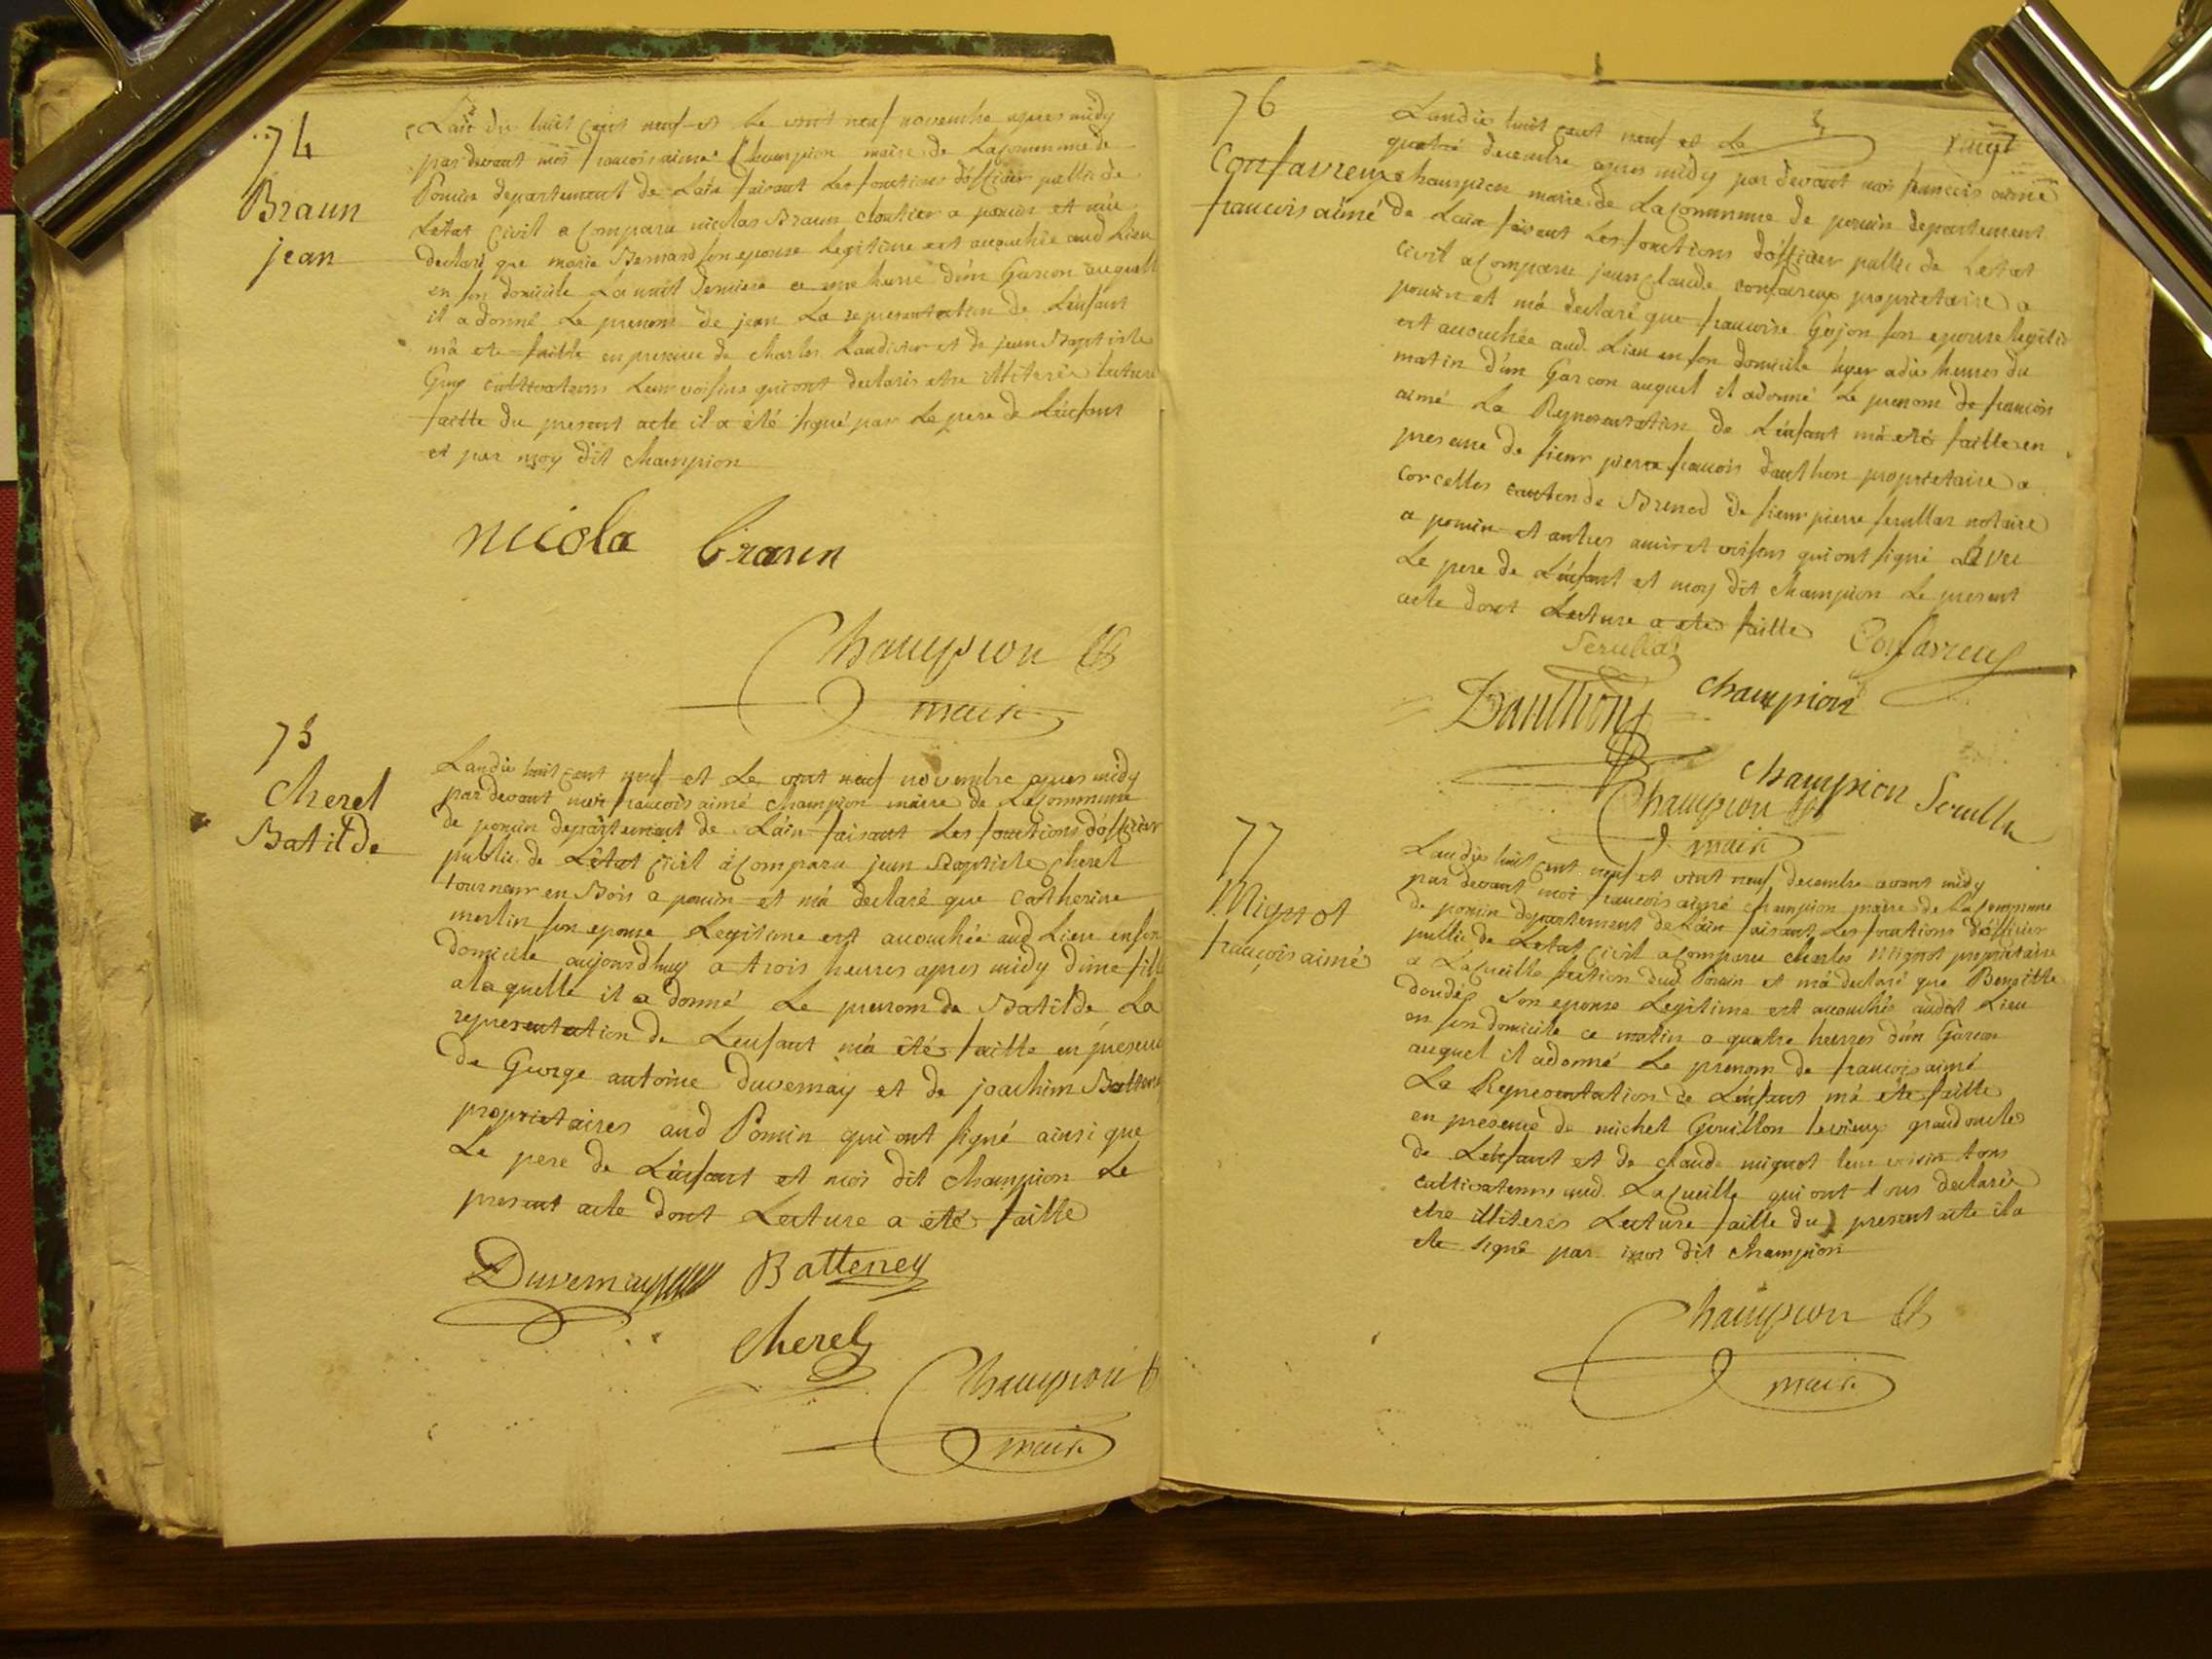 74
Braun
jean
Lan dix huit cent neuf et le vint neuf novembre apres midy
par devant moi francois aimé Champion maire de La commune de
Poncin departement de L'ain faisant Les fonctions d'officier public de
Letat Civil a Comparu nicolas Braun cloutier a poncin et m'a
declaré que marie Bernard son epouse Legitime est acouchée aud Lieu
en son domicile La nuit derniere a une heure d'un Garcon auquel
il a donné Le prenom de jean La representation de L'enfant
m'a ete faitte en presence de charles Laudivier et de jean Baptiste
Guy cultivateurs Leur voisins qui ont declarés etre illiterés lecture
faitte du present acte il a été signé par Le pere de L'enfant
et par moy dit champion
nicola braun
Champion
maire
75
Cherel
Batilde
Lan dix huit cent neuf et Le vint neuf novembre apres midy
par devant moi francois aimé champion maire de La commune
de poncin departement de L'ain faisant Les fonctions d'officier
public de L'etat civil a comparu jean Baptiste Cherel
tourneur en Bois a poncin et m'a declaré que Catherine
merlin son epouse Legitime est acouchée aud Lieu en son
domicile aujourd'huy a trois heures apres midy d'une fille
a la quelle il a donné Le prenom de Batilde La
representation de L'enfant m'a été faitte en presence
de George antoine duvernay et de joachim Batteney
proprietaires aud Poncin qui ont signé ainsi que
Le pere de L'enfant et moi dit champion Le
present acte dont Lecture a été faitte
Duvernay Batteney
Cherel
Champion
maire
76
Confavreux
francois aimé
Lan dix huit cent neuf et Le vingt
quatre decembre apres midy par devant moi francois aimé
champion maire de La commune de poncin departement
de L'ain faisant Les fonctions d'officier public de L'etat
civil a comparu jean claude confavreux proprietaire a
poncin et m'a declaré que francoise Gojon son epouse legitime
est acouchée aud Lieu en son domicile hyer a dix heures du
matin d'un Garcon auquel il a donné Le prenom de francois
aimé La Representation de L'enfant m'a eté faitte en
presence de sieur pierre francois dauthon proprietaire a
Corcelles canton de Brenod de sieur pierre serullaz notaire
a poncin et autres amis et voisins qui ont signé avec
Le pere de L'enfant et moy dit champion Le present
acte dont Lecture a eté faitte
Serullaz Confavreux
Dauthon champion
champion Serulla
Champion
maire
77
Mignot
francois aimé
Lan dix huit cent neuf et vint neuf decembre avant midy
par devant moi francois aimé champion maire de La commune
de poncin departement de L'ain faisant Les fonctions d'officier
public de L'etat civil a comparu charles Mignot proprietaire
a La cueille section dud Poncin et m'a declaré que Benoitte
son epouse Legitime est acouchée audit Lieu
en son domicile ce matin a quatre heures d'un Garcon
auquel il a donné Le prenom de francois aimé
La Representation de L'enfant m'a ete faitte
en presence de michel Gouillon le vieux grand oncle
de L'enfant et de claude mignot leur voisin tous
cultivateurs aud. La cueille qui ont tous declarés
etre illiterés Lecture faitte du present acte il a
ete signé par moi dit champion
Champion
maire